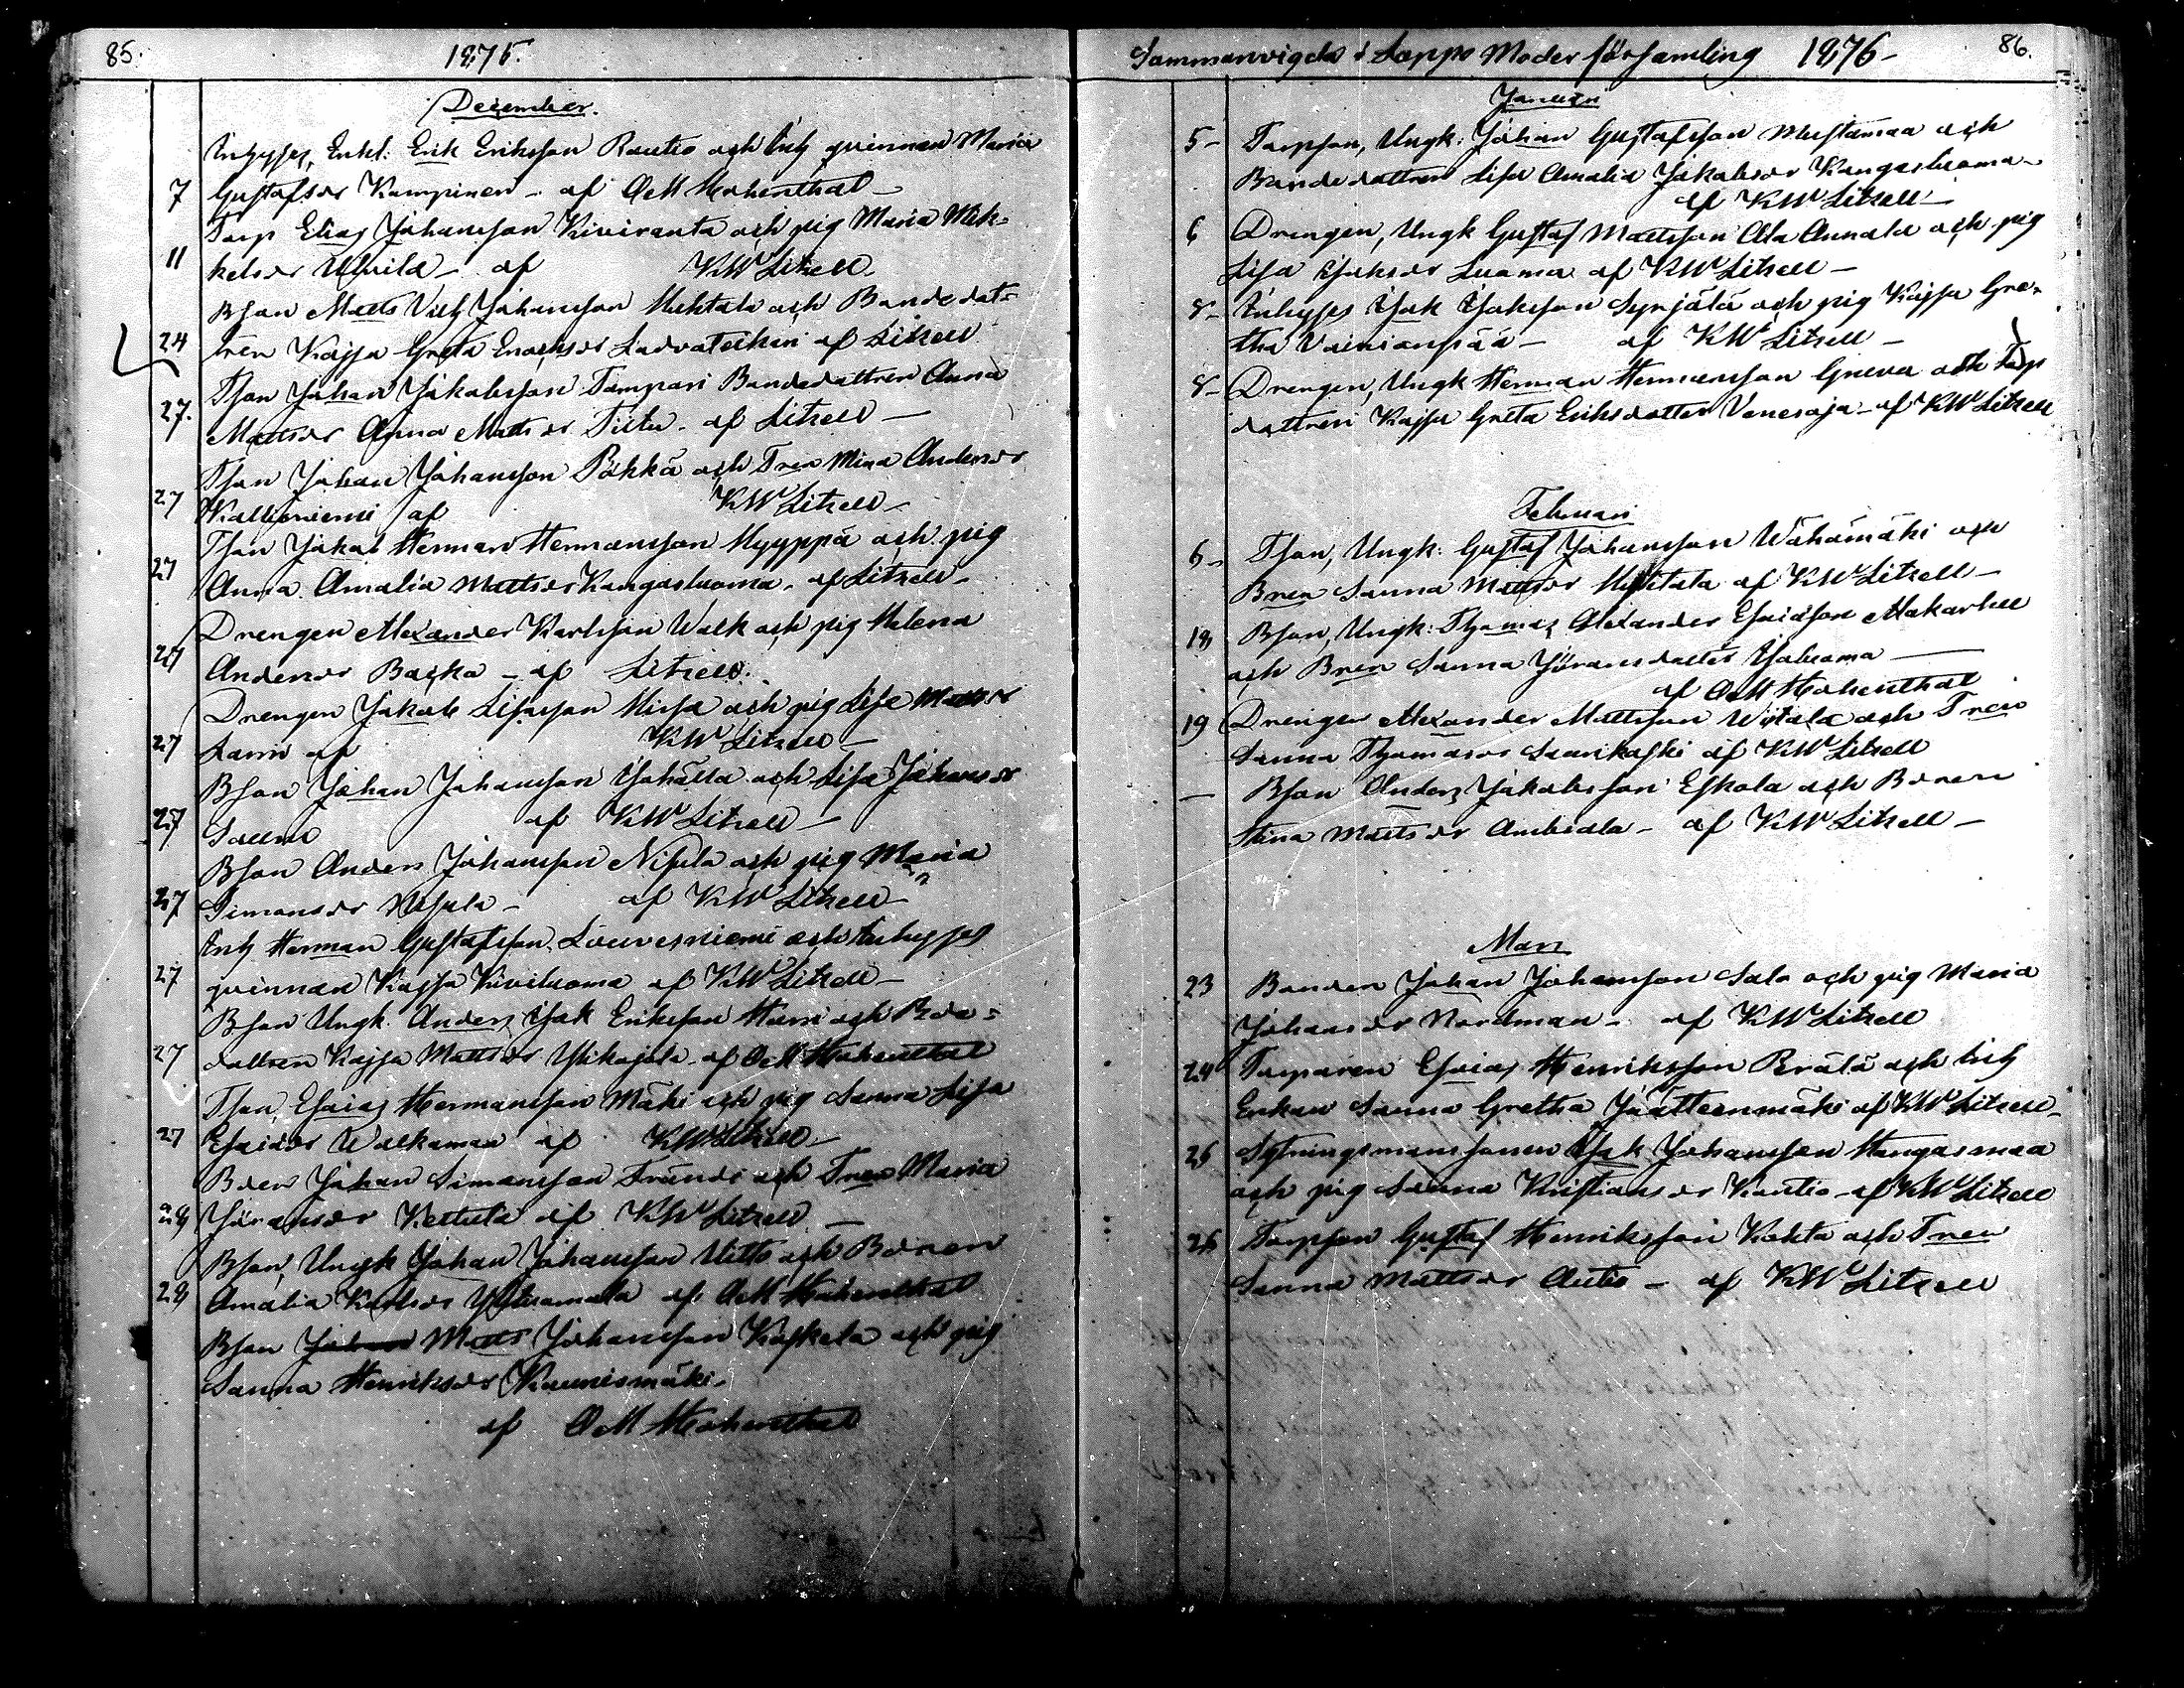 85.
1875.
December.
Inhyses, Enkl: Erik Eriksson Rautio och Inh qvinnan Maria
7 Gustafsdr Kampinen - af OM Hohenthal -
Torp Elias Johansson Kiviranta och pig Maria Mik-
11 kelsdr - af KW Litzell
Bson Matts Johansson Huhtala och Bondedot-
24 tren Kajsa Greta Enochsdr af Litzell
Tson Johan Jakobsson Tampari Bondedottren Anna
27. Mattsdr Anna Mattsdr - af Litzell -
Tson Johan Johansson Pökkä och Tren Mina Andersdr
27 Kallioniemi af KW Litzell -
Tson Jakob Herman Hermansson Hyyppä och pig
27 Anna Amalia Mattsdr Kangasluoma. af Litzell -
Drengen Alexander Karlsson Walk och pig Helena
27 Andersdr Backa - af Litzell.
Drengen Jakob och pig Lisa Mattsdr
27 Lammi af KW Litzell -
Bson Johan Johansson och Lisa Johansdr
27 af KW Litzell -
Bson Anders Johansson Nisula och pig Maria
27 Simonsdr - af KW Litzell -
Inh Herman Gustafsson och Inhyses
27 qvinnan Kajsa Kiviluoma af KW Litzell -
Bson Ungk. Anders Isak Eriksson Harri och Bde-
27 dottren Kajsa Mattsdr af OM Hohenthal
Tson, Esaias Hermansson Mäki och pig Sanna Lisa
27 Esaidr Walkamaa af KW Litzell -
Bden Johan Simonsson och Tren Maria
28 Jöransdr Kettula af KW Litzell -
Bson, Ungk Johan Johansson och Bdren
28 Amalia Karlsdr af OM Hohenthal
Bson Johan Matts Johansson Koskela och pig
Sanna Henriksdr Kaunismäki.
af OM Hohenthal
Sammanvigda i Lappo Moderförsamling 1876 -
86.
Januari
5 - Torpson, Ungk: Johan Gustafsson Mustamaa och
Bondedottren Lisa Amalia Jakobsdr Kangasluoma -
af KW Litzell -
6 Drengen, Ungk Gustaf Mattsson Ala Annala och pig
Lisa Isaksdr Luoma af KW Litzell -
8 - Inhyses Isak Isaksson Syrjälä och pig Kajsa Gre-
tha Vainionpää - af KW Litzell -
8 - Drengen, Ungk Herman Hermansson och Torp
dottren Kajsa Greta Eriksdotter Veneoja - af KW Litzell
Februari
6 - Tson, Ungk: Gustaf Johansson Wähämäki och
Bren Sanna Mattsdr Huhtala af KW Litzell -
18 Bson, Ungk: Thomas Alexander Esaidson
och Bren Sanna Jöransdotter Isoluoma -
af OM Hohenthal
19 Drengen Alexander Mattsson och Tren
Sanna Thomasdr Saarikoski af KW Litzell
- Bson Anders Jakobsson Eskola och Bdren
Stina Mattsdr - af KW Litzell -
Mars
23 Bonden Johan Johansson Salo och pig Maria
Johansdr Nordman - af KW Litzell
24 Torparen Esaias Henriksson Perälä och Inh
Enkan Sanna Gretha Jäätteenmäki af KW Litzell -
25 Sytningsmanssonen Isak Johansson Hangasmaa
och pig Sanna Kristiansdr Rautio - af KW Litzell
26 Torpson Gustaf Henriksson och Tren
Sanna Mattsdr Autio - af KW Litzell